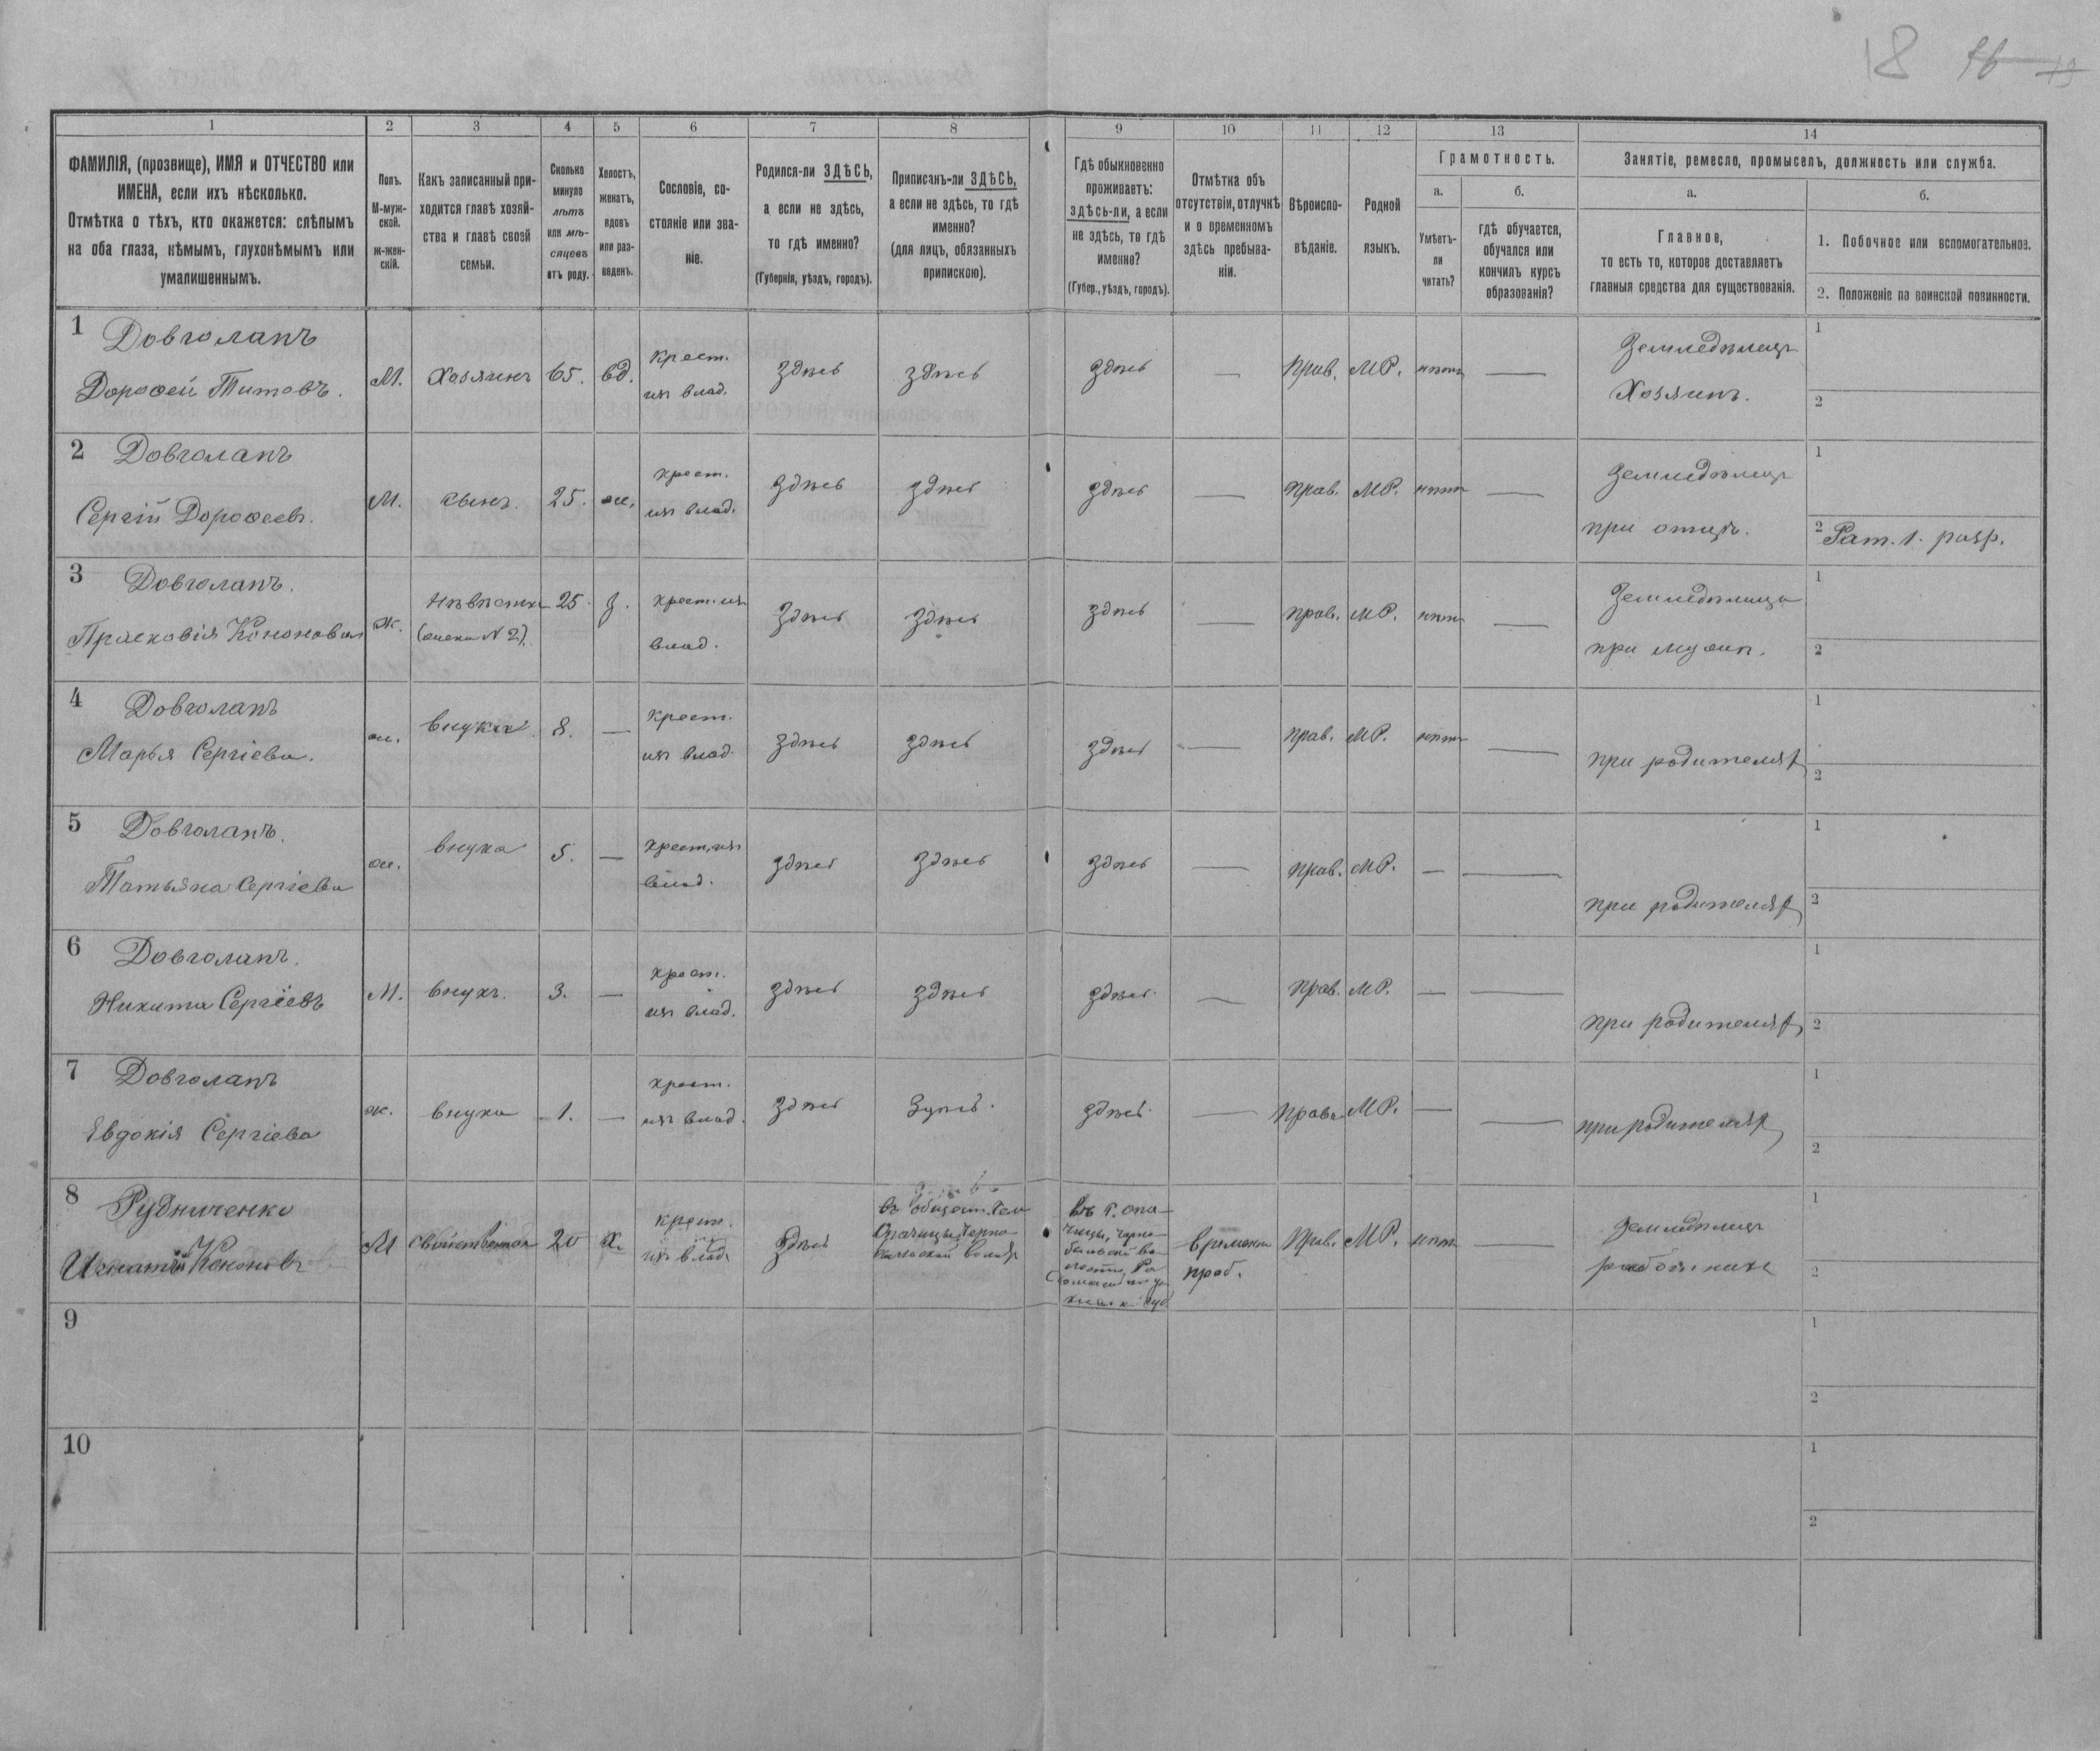 18 16 19
1 2 3 4 5 6 7 8 9 10 11 12 13 14
ФАМИЛІЯ, (прозвище), ИМЯ и ОТЧЕСТВО или
ИМЕНА, если ихъ нѣсколько.
Отмѣтка о тѣхъ, кто окажется: слѣпымъ
на оба глаза, нѣмымъ, глухонѣмымъ или
умалишеннымъ.
Полъ.
М-муж-
ской.
ж-жен-
скій.
Какъ записанный при-
ходится главѣ хозяй-
ства и главѣ своей
семьи.
Сколько
минуло
лѣтъ
или мѣ-
сяцевъ
отъ роду.
Холостъ,
женатъ,
вдовъ
или раз-
веденъ.
Сословіе, со-
стояніе или зва-
ніе.
Родился-ли ЗДѢСЬ,
а если не здѣсь,
то гдѣ именно?
(Губернія, уѣздъ, городъ).
Приписанъ-ли ЗДѢСЬ,
а если не здѣсь, то гдѣ
именно?
(для лицъ, обязанныхъ
припискою).
Гдѣ обыкновенно
проживаетъ:
здѣсь-ли, а если
не здѣсь, то гдѣ
именно?
(Губер., уѣздъ, городъ).
Отмѣтка объ
отсутствіи, отлучкѣ
и о временномъ
здѣсь пребыва-
ніи.
Вѣроиспо-
вѣданіе.
Родной
языкъ.
Грамотность.
а.
Умѣетъ-
ли
читать?
б.
гдѣ обучается,
обучался или
кончилъ курсъ
образованія?
Занятіе, ремесло, промыселъ, должность или служба.
а.
Главное,
то есть то, которое доставляетъ
главныя средства для существованія.
б.
1. Побочное или вспомогательное.
2. Положеніе по воинской повинности.
1 Довголапъ
Дорофей Титовъ.
М. Хозяинъ 65. вд.
Крест.
изъ влад.
здѣсь здѣсь здѣсь — Прав. МР. нѣтъ —
Земледѣлецъ
Хозяинъ.
1
2
2 Довголапъ
Сергій Дорофеевъ.
М. сынъ. 25. ж.
крест.
изъ влад.
здѣсь здѣсь здѣсь — Прав. МР. нѣтъ —
Земледѣлецъ
при отцѣ.
1
2 Рат. 1. разр.
3 Довголапъ.
Прасковія Кононова
ж.
Невѣстка
(жена N 2).
25. з.
крест. изъ
влад.
здѣсь здѣсь здѣсь — прав. МР. нѣтъ —
Земледѣлица
при мужѣ.
1
2
4 Довголапъ
Марья Сергіева.
ж. внука 8. —
крест.
изъ влад.
здѣсь здѣсь здѣсь — прав. МР. нѣтъ —
при родителях
1
2
5 Довголапъ.
Татьяна Сергіева
ж. внука 5. —
крест. изъ
влад.
здѣсь здѣсь здѣсь — прав. МР. — —
при родителях
1
2
6 Довголапъ.
Никита Сергіевъ
М. внукъ. 3. —
крест.
изъ влад.
здѣсь здѣсь здѣсь — Прав. МР. — —
при родителях
1
2
7 Довголапъ
Евдокія Сергіева
ж. внука 1. —
крест.
изъ влад.
здѣсь здѣсь здѣсь — Прав. МР. — —
при родителях
1
2
8 Рудниченко
Игнатій Кононовъ
М 20 х.
крест.
изъ влад.
здѣсь
въ общест. села
волос.
въ с. Опа-
чицы, Черно-
временно
проб.
Прав. МР. нѣтъ —
Земледѣлецъ
работникъ
1
2
9
1
2
10
1
2